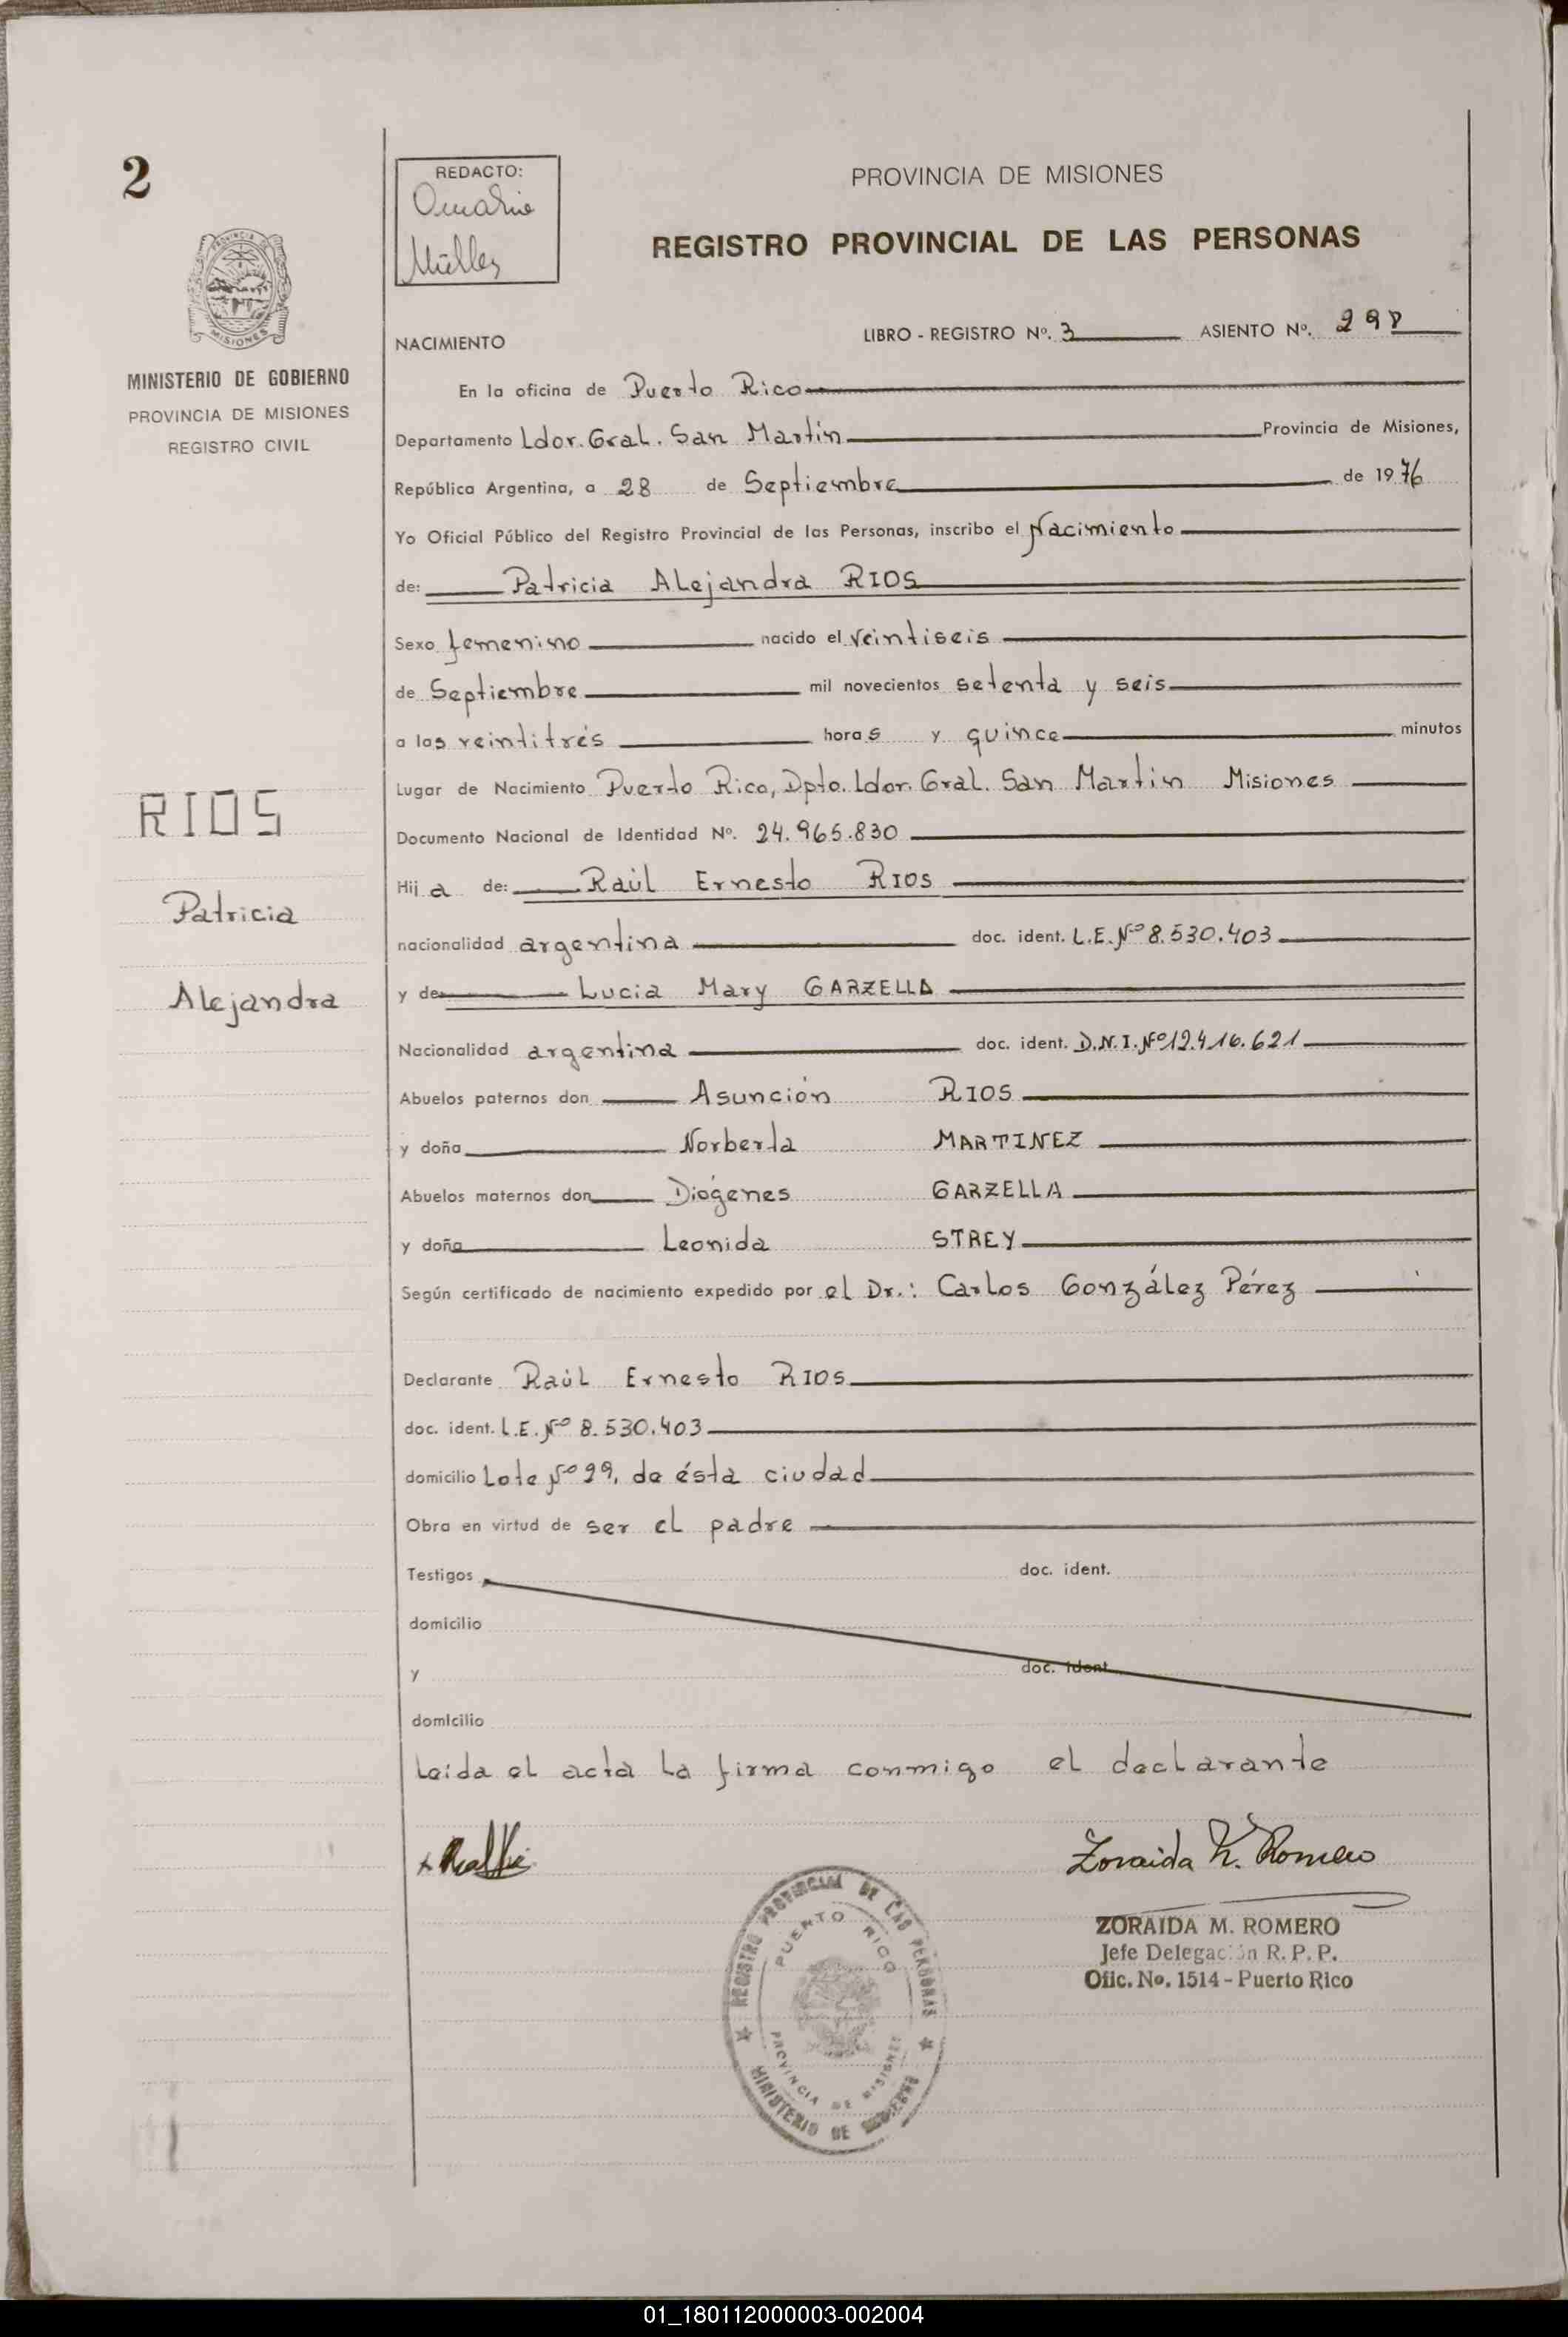 2
PROVINCIA DE
MISIONES
MINISTERIO DE GOBIERNO
PROVINCIA DE MISIONES
REGISTRO CIVIL
RIOS
Patricia
Alejandra
REDACTO:
Müller
PROVINCIA DE MISIONES
REGISTRO PROVINCIAL DE LAS PERSONAS
NACIMIENTO LIBRO - REGISTRO Nº. 3 ASIENTO Nº. 298
En la oficina de Puerto Rico
Departamento Ldor. Gral. San Martín Provincia de Misiones,
República Argentina, a 28 de Septiembre de 1976
Yo Oficial Público del Registro Provincial de las Personas, inscribo el Nacimiento
de: Patricia Alejandra RIOS
Sexo femenino nacido el veintiseis
de Septiembre mil novecientos setenta y seis
a las veintitrés horas y quince minutos
Lugar de Nacimiento Puerto Rico, Dpto. Ldor. Gral. San Martin Misiones
Documento Nacional de Identidad Nº. 24.965.830
Hija de: Raúl Ernesto RIOS
nacionalidad argentina doc. ident. L.E. Nº 8.530.403
y de Lucia Mary GARZELLA
Nacionalidad argentina doc. ident. D.N.I. Nº 12.416.621
Abuelos paternos don Asunción RIOS
y doña Norberta MARTINEZ
Abuelos maternos don Diógenes GARZELLA
y doña Leonida STREY
Según certificado de nacimiento expedido por el Dr.: Carlos González Pérez
Declarante Raúl Ernesto RIOS
doc. ident. L.E. Nº 8.530.403
domicilio Lote Nº 29, de ésta ciudad
Obra en virtud de ser el padre
Testigos doc. ident.
domicilio
y doc. ident.
domicilio
Leida el acta la firma conmigo el declarante
Zoraida M. Romero
ZORAIDA M. ROMERO
Jefe Delegación R. P. P.
Ofic. No. 1514 - Puerto Rico
REGISTRO PROVINCIAL DE LAS PERSONAS
PUERTO RICO
PROVINCIA DE MISIONES
MINISTERIO DE GOBIERNO
01_180112000003-002004